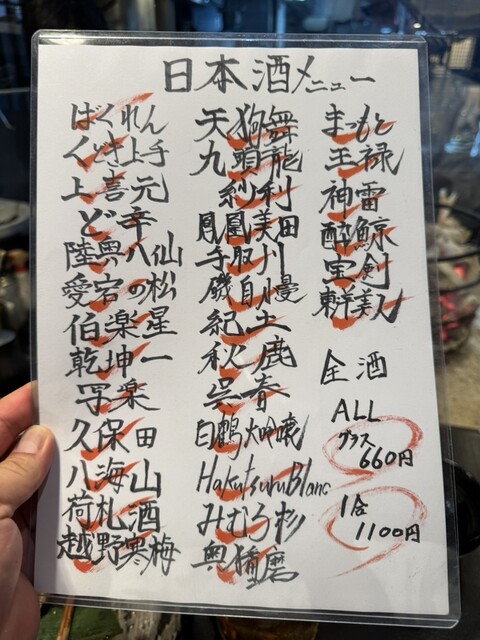 日本酒メニュー
ばくれん
くどき上手
上喜元
ど辛
陸奥八仙
愛宕の松
伯楽星
乾坤一
写楽
久保田
八海山
荷札酒
越野寒梅
天狗舞
九頭龍
紗利
鳳凰美田
手取川
磯自慢
紀土
秋鹿
呉春
白鶴大吟醸
HakutsuruBlanc
みむろ杉
奥播磨
まーもと
王禄
神雷
酔鯨
宝剣
東洋美人
全酒
ALL
グラス
660円
1合
1100円